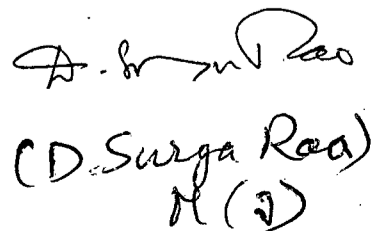 D. Surya Rao
(D. Surya Rao)
M (J)